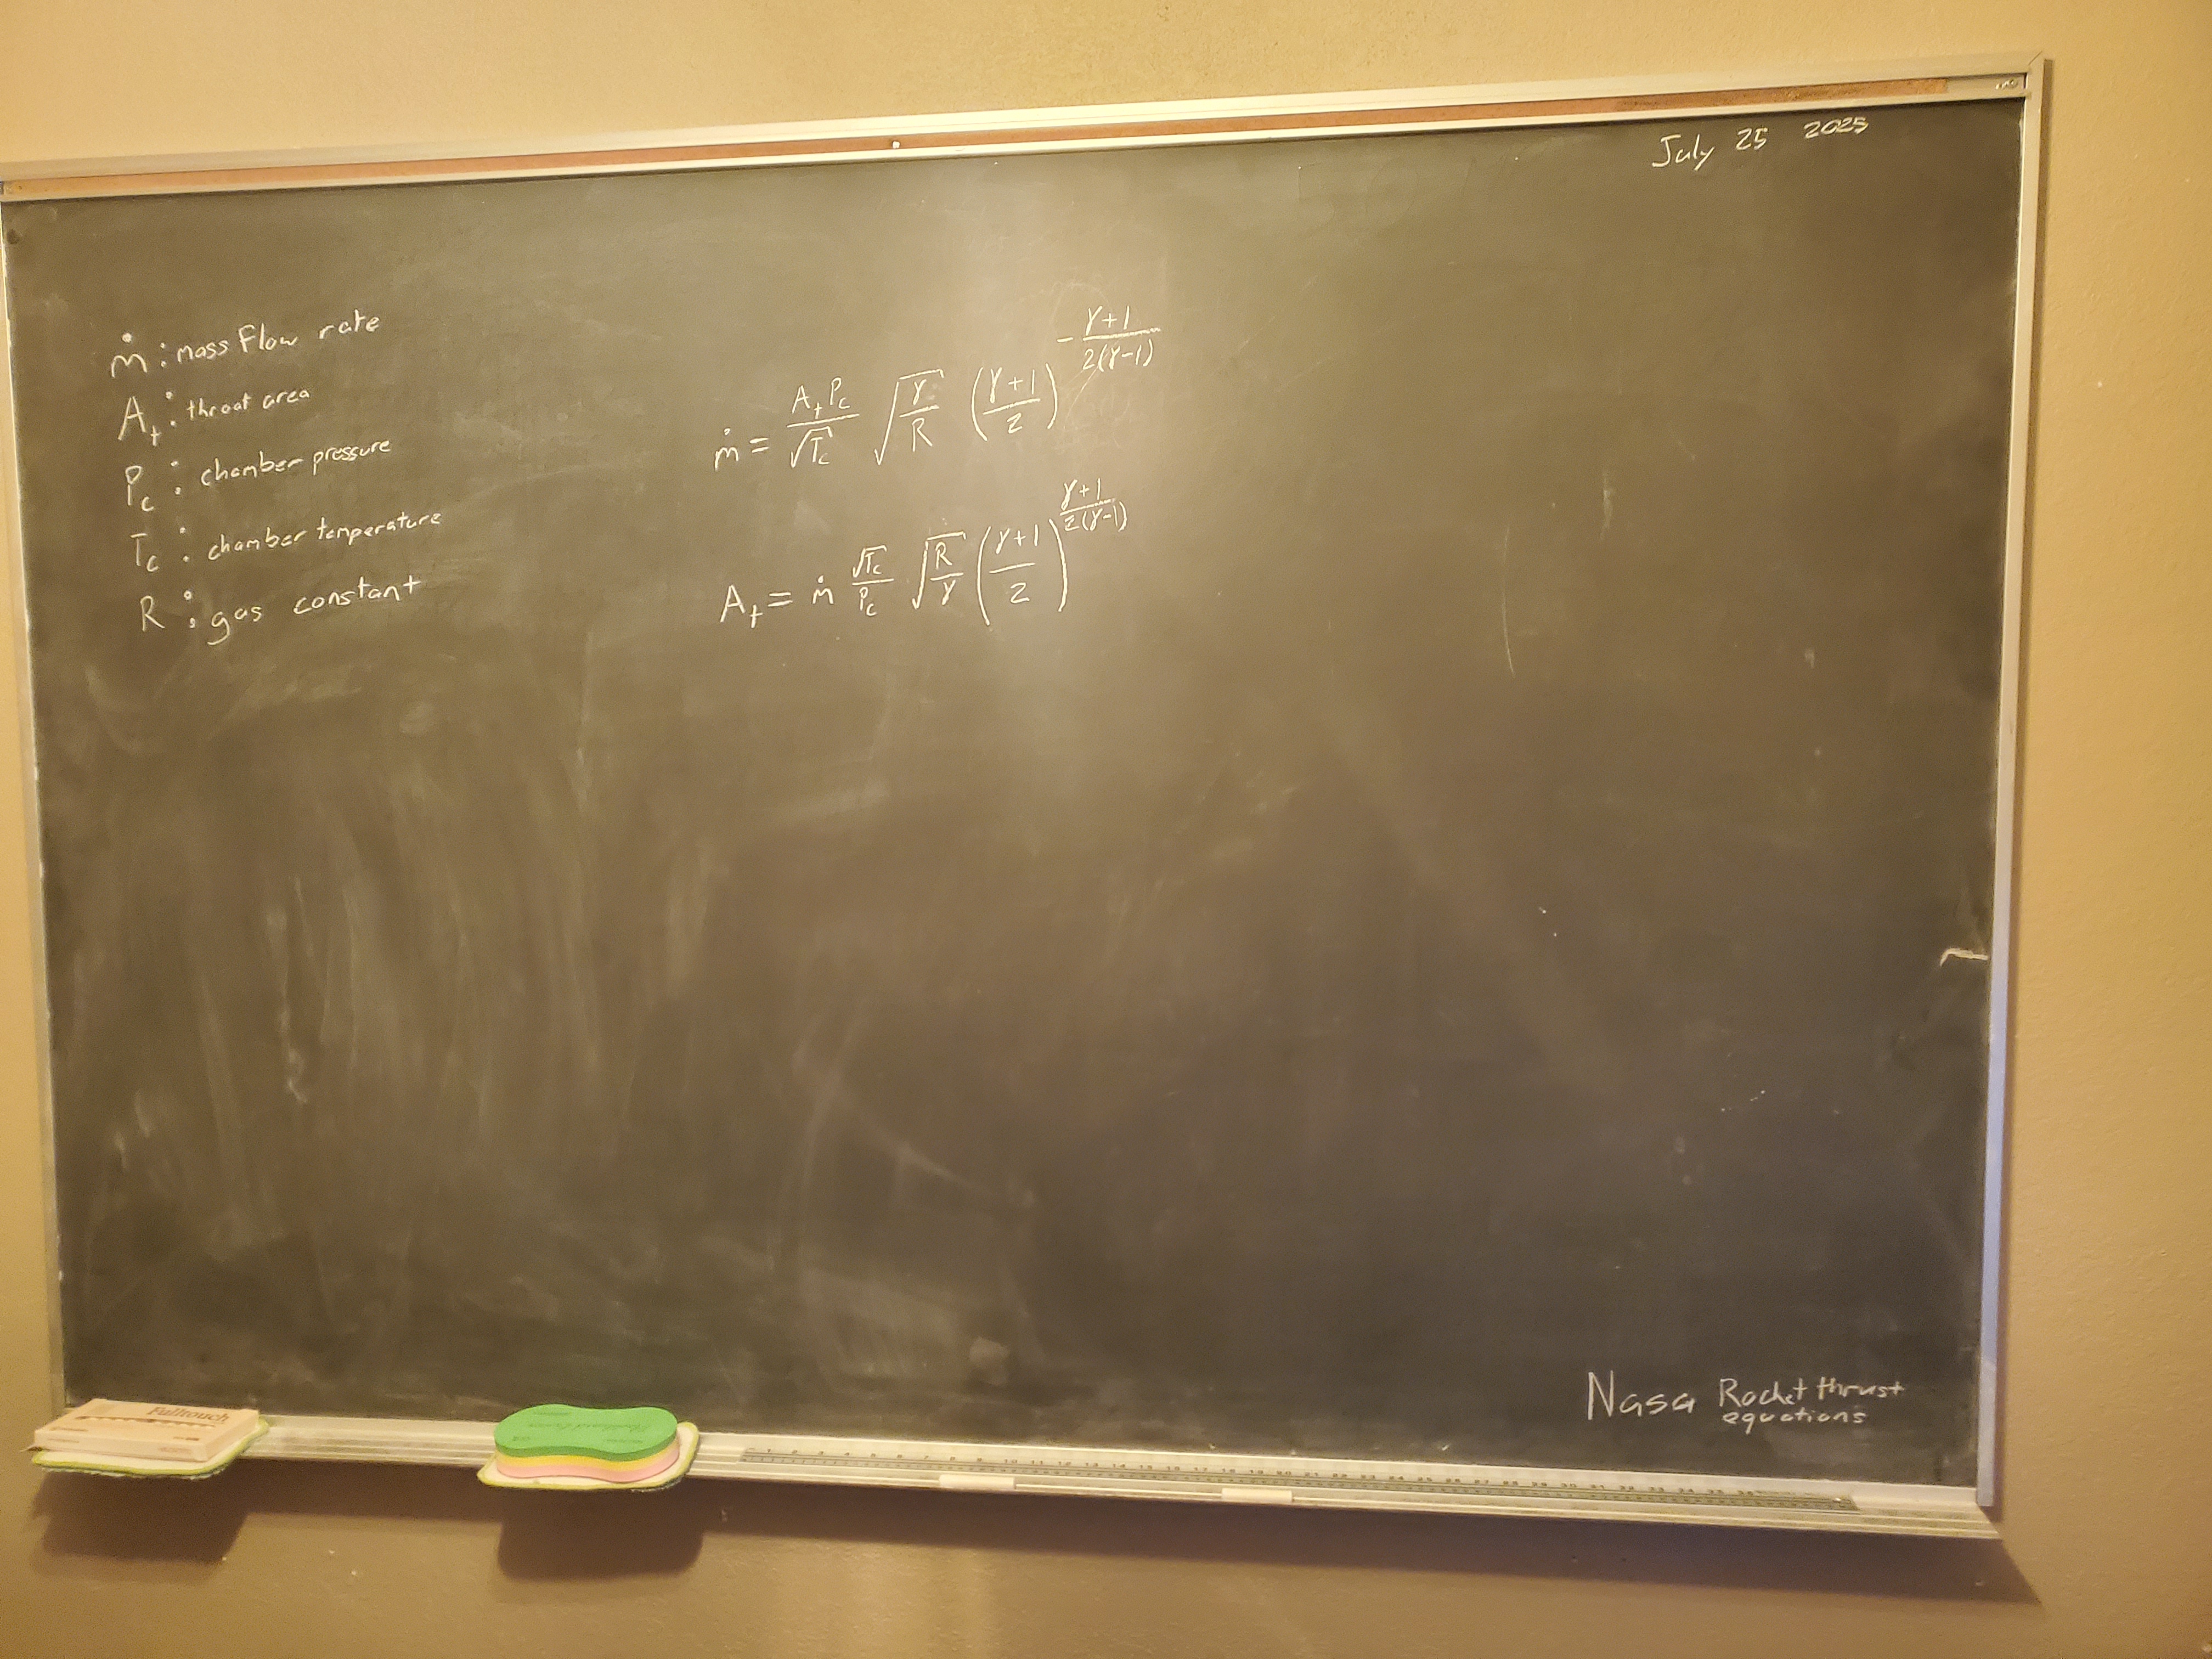 July 25 2025
ṁ : mass Flow rate
A_t : throat area
P_c : chamber pressure
T_c : chamber temperature
R : gas constant
ṁ = (A_t P_c)/(√T_c) √(γ/R) ((γ+1)/2)^(-(γ+1)/(2(γ-1)))
A_t = ṁ (√T_c)/(P_c) √(R/γ) ((γ+1)/2)^((γ+1)/(2(γ-1)))
Nasa Rocket thrust
equations
Fulltouch